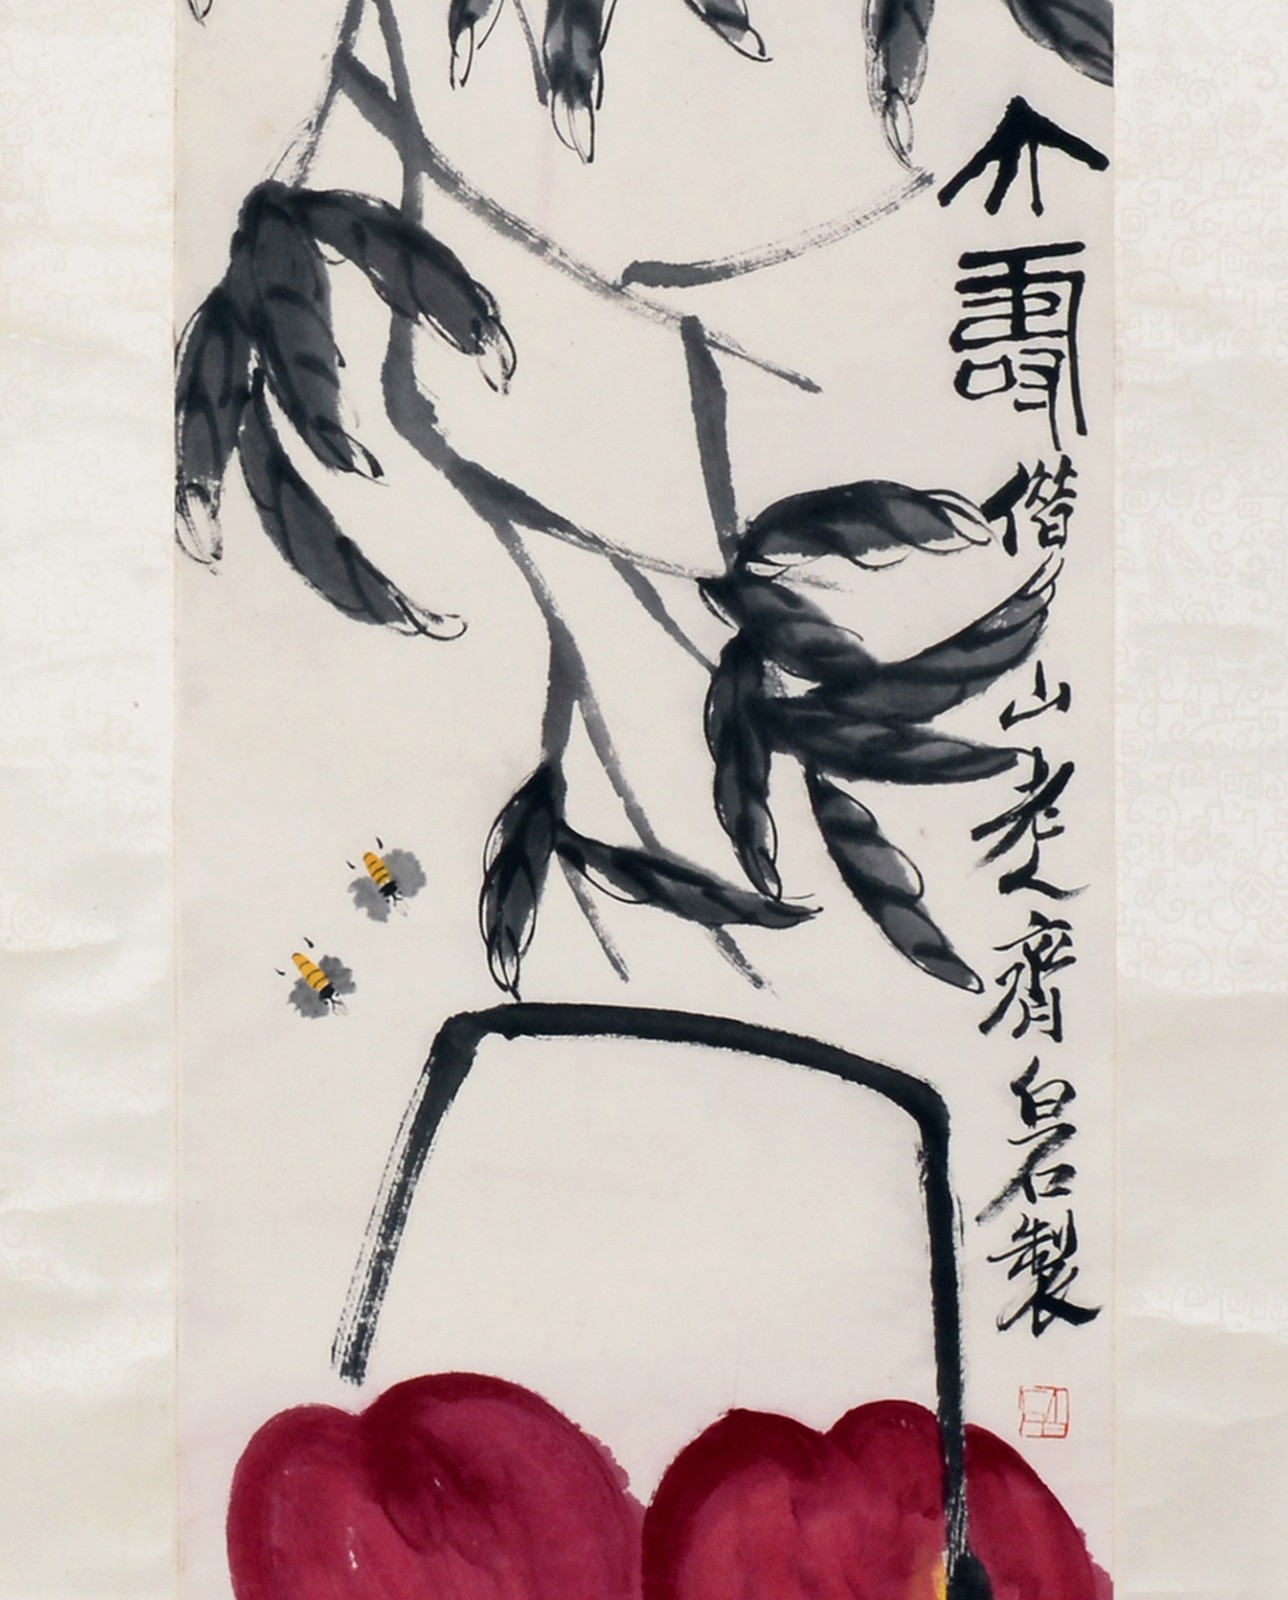 大壽
借山老人齊白石製